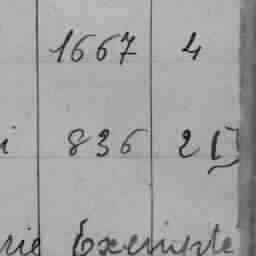 1667 4
i 836 2
rie Exempte